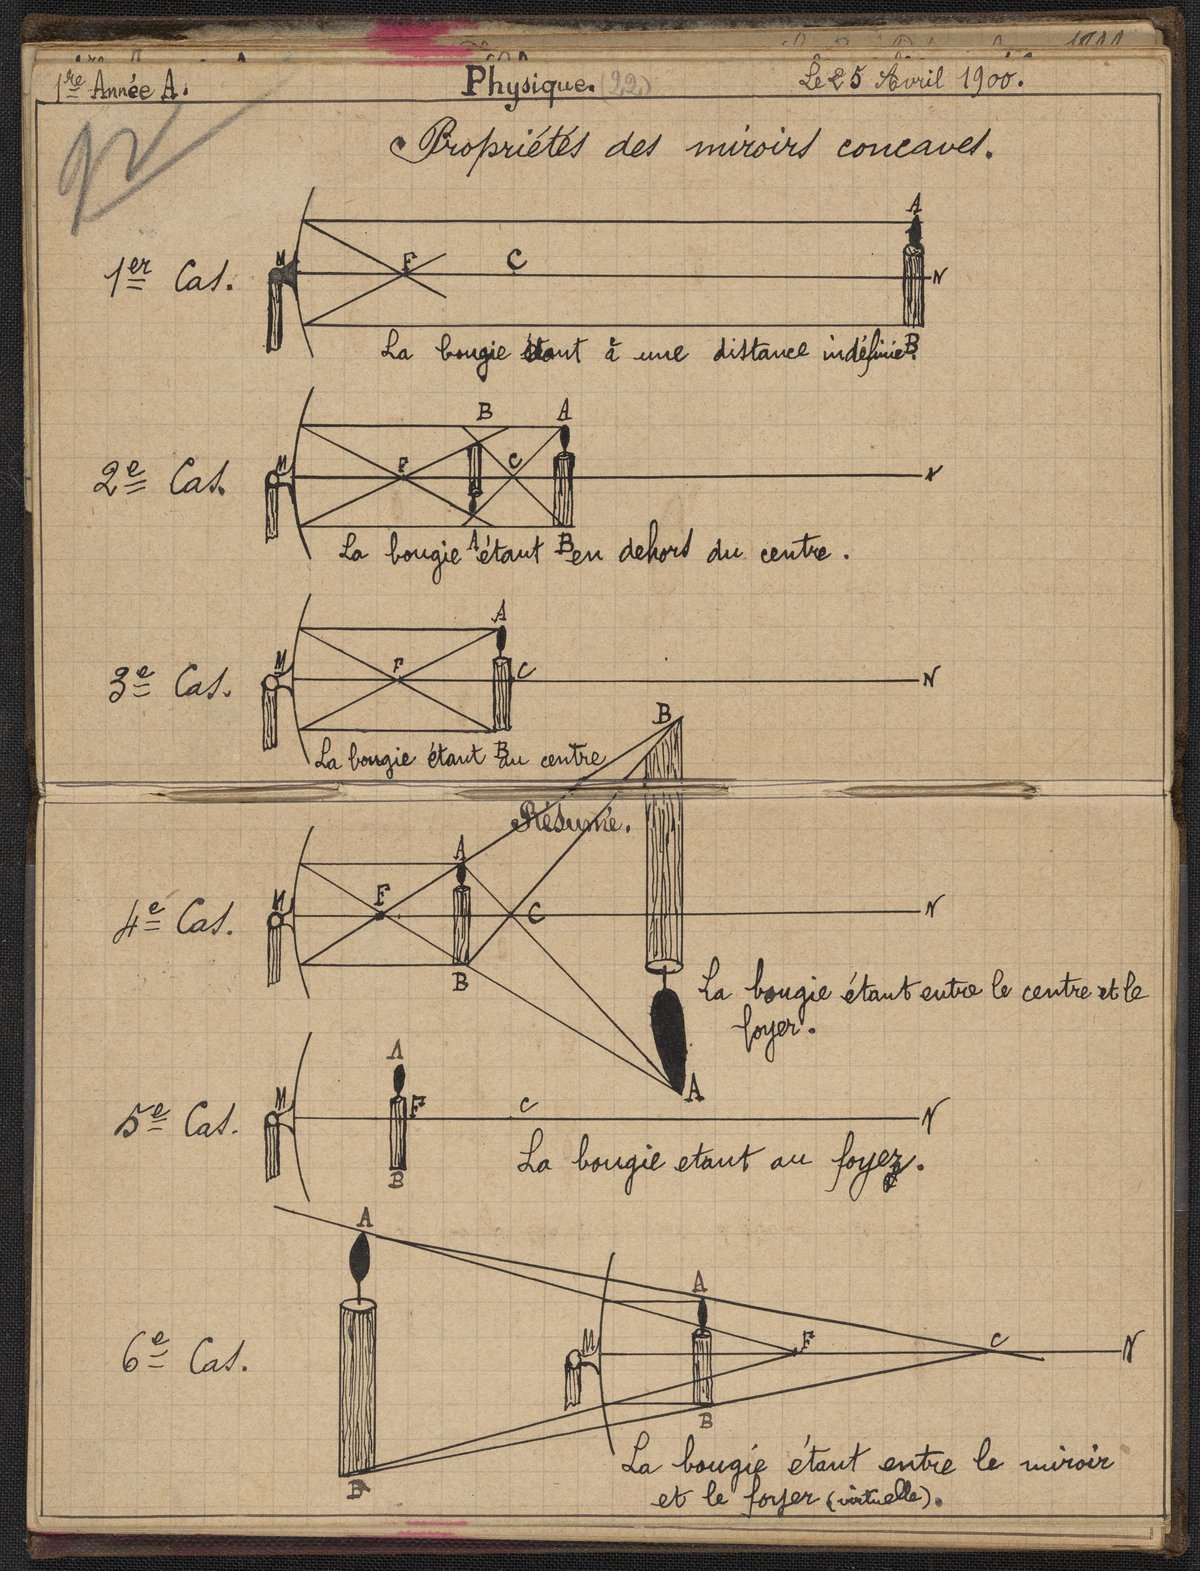 1re Année A. Physique. (22) Le 25 Avril 1900.
Propriétés des miroirs concaves.
A
1er Cas. M F C N
La bougie étant à une distance indéfinie. B
B A
2e Cas. M F C N
La bougie A étant B en dehors du centre.
A
3e Cas. M F C N
B
La bougie étant B au centre
Résumé.
A
4e Cas. M F C N
B
La bougie étant entre le centre et le
foyer.
A
A
5e Cas. M F C N
La bougie etant au foyer.
B
A
A
6e Cas. M F C N
B
La bougie étant entre le miroir
B
et le foyer (virtuelle).